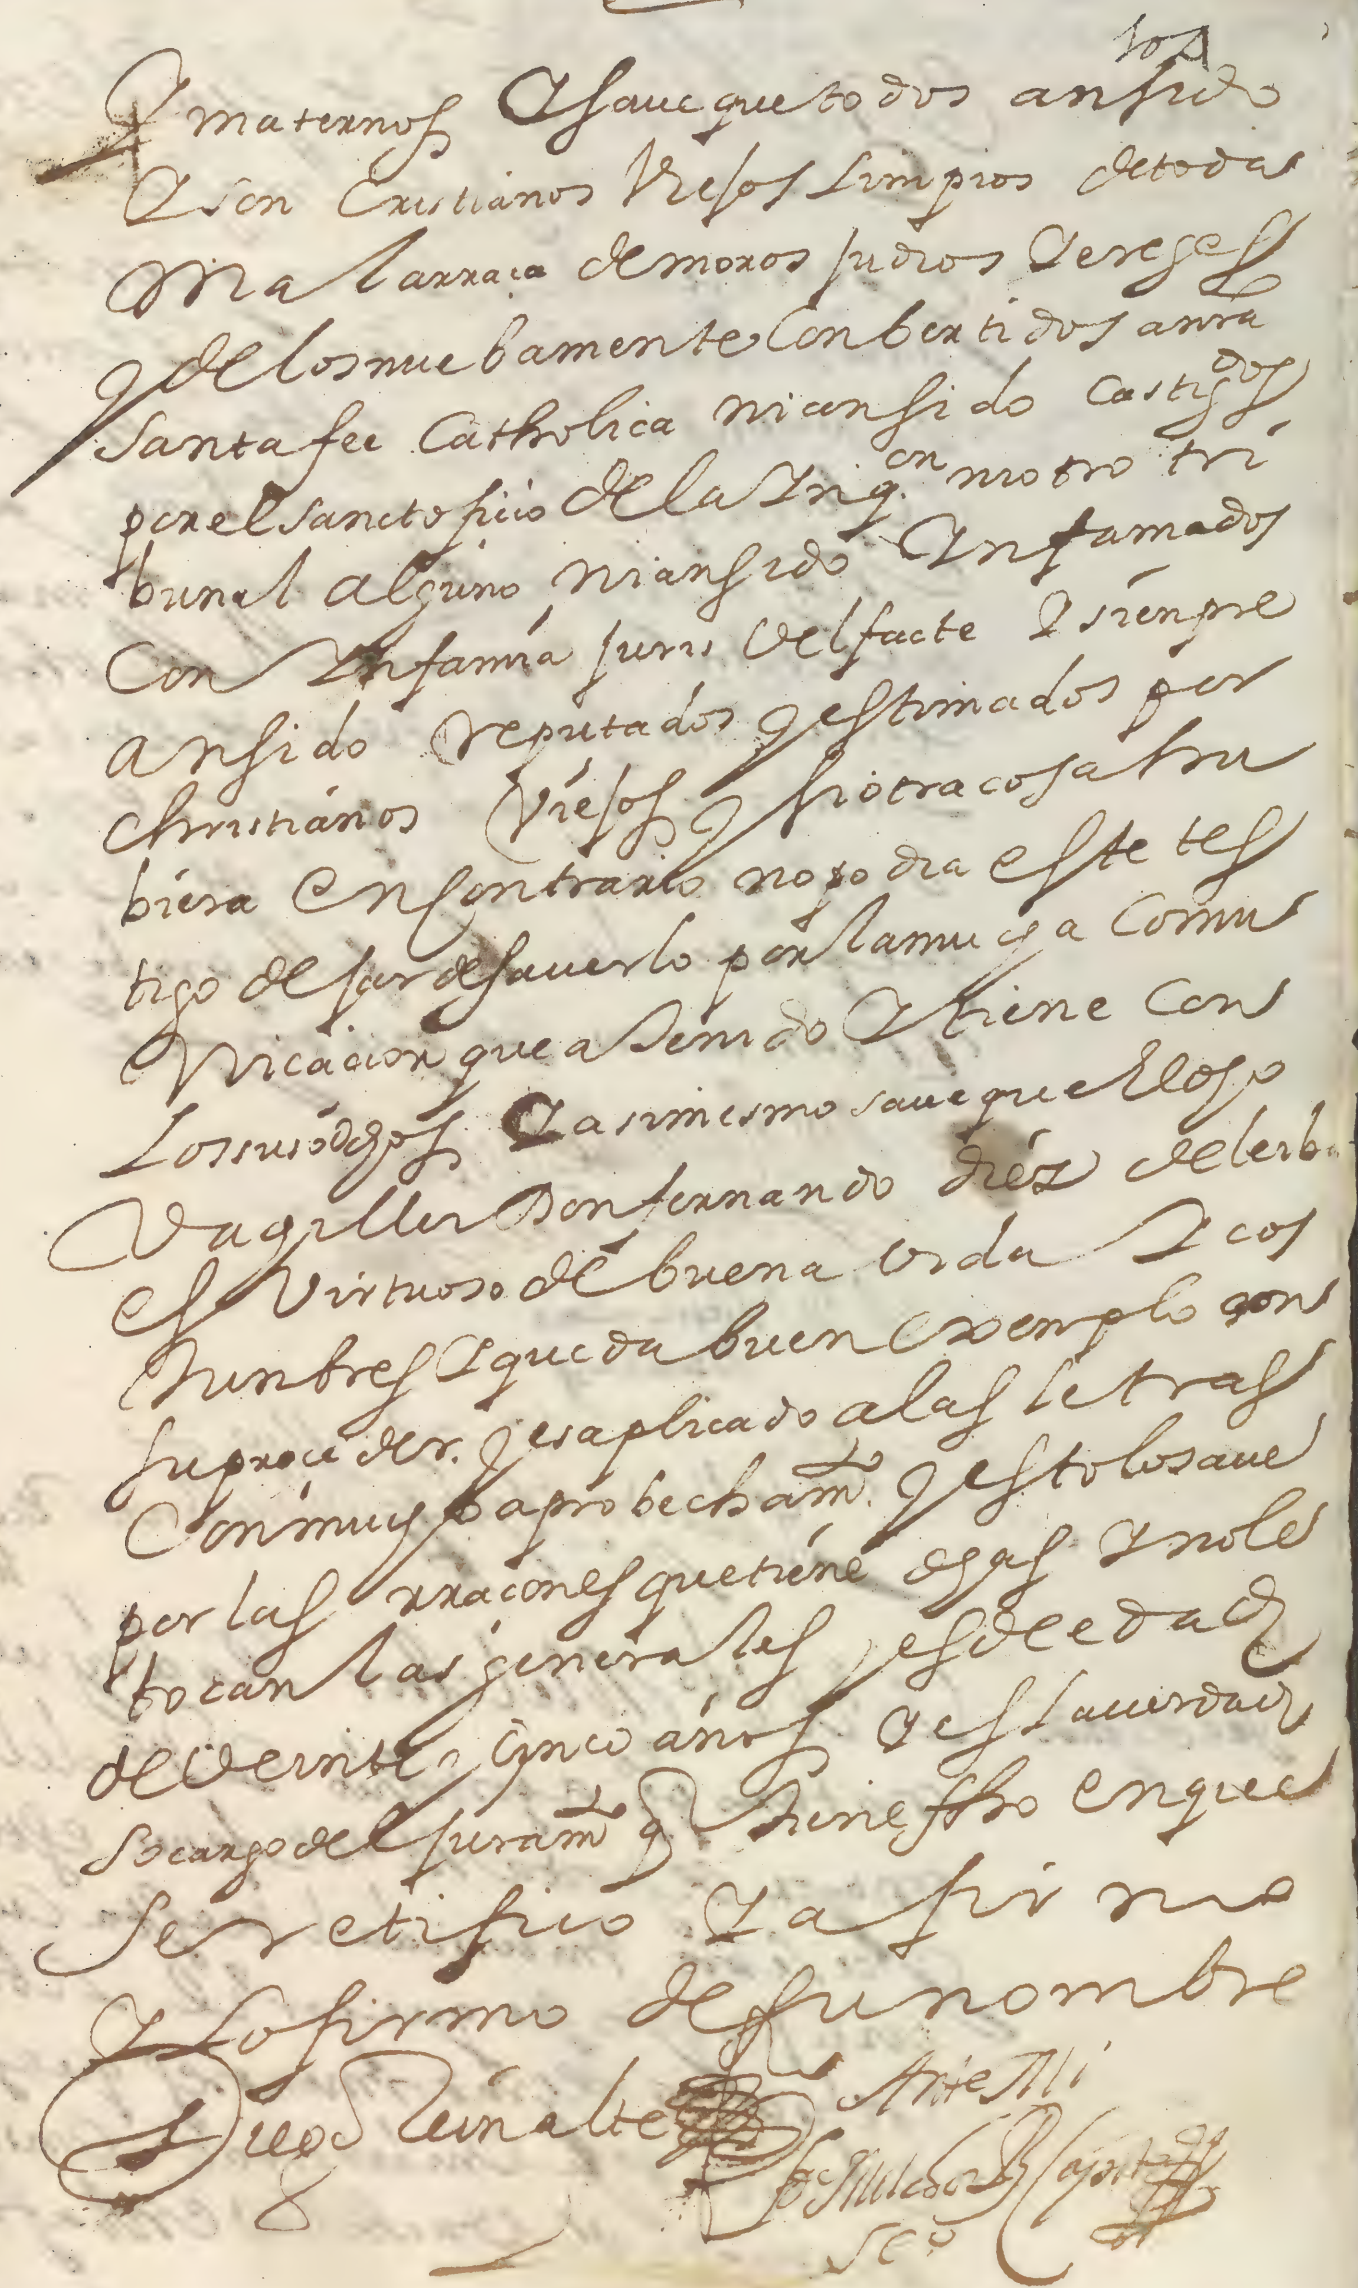 Y maternos Y saue que todos an sido
Y son Cristianos Viejos Limpios de todas
Mala rraça de moros judios Y ereges
y de los nuebamente Conbertidos a nrã
Santa fee Catholica ni an sido Castigdos
por el sancto ficio de la Ynqon. ni otro tri
bunal alguno ni an sido Ynfamados
Con Ynfamia juris Vel facte Y sienpre
an sido reputados y estimados por
christianos Viejos y si otra cosa hu
biera en contrario no podia este tes
tigo dejar de sauerlo por la mucha Comu
nicacion que a tenido Y tiene Con
Los susodhos Y asimesmo saue que el dho
Vachiller Don fernando diez de leiba
es Virtuoso de buena Vida Y cos
tunbres Y que da buen exemplo con
su proceder. y es aplicado a las letras
Con mucho aprobechamto. y esto lo saue
por las rraçones que tiene dhas Y no le
tocan las generales y es de edad
de Veinte y cinco años Y es La uerdad
so cargo del juramto q tiene fho en que
se retifico Y afirmo
Y Lo firmo de su nombre
Diego Reinalte
Ante Mi
Melchor
Seo